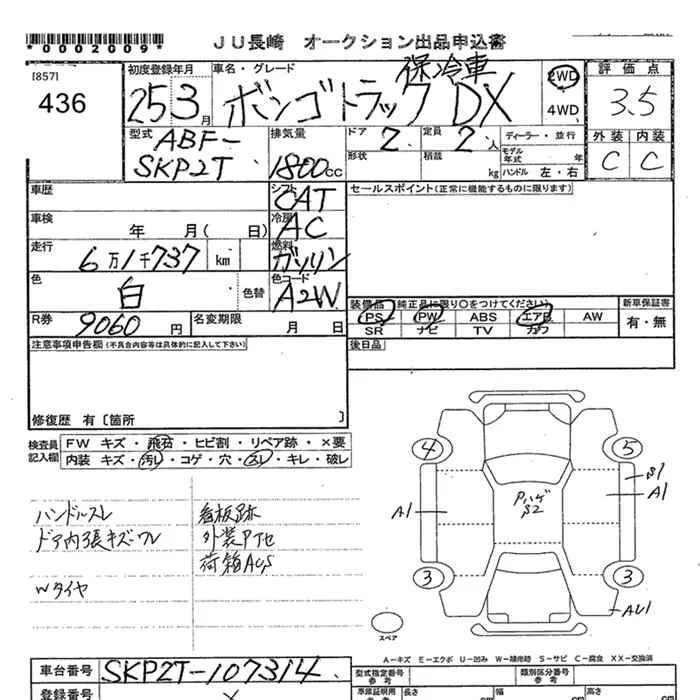 *0002009*
JU長崎 オークション出品申込書
[857]
436
初度登録年月
25 3月
車名・グレード
保冷車
ボンゴトラック DX
2WD
4WD
評価点
3.5
外装 内装
C C
型式
ABF-
SKP2T
排気量
1800cc
ドア 2
定員 2人
形状
積載 kg
ディーラー・並行
モデル年式 年
ハンドル 左・右
車歴
シフト CAT
セールスポイント(正常に機能するものに限ります)
車検 年 月( 日)
冷房 AC
走行 6万1千737 km
燃料 ガソリン
色 白 色替
色コード A2W
装備品 純正品に限り○をつけてください
新車保証書
PS PW ABS エアB AW
有・無
SR ナビ TV カワ
R券 9060円
名変期限 月 日
注意事項申告欄(不具合内容等は具体的に記入して下さい)
後日品
修復歴 有〔箇所 〕
検査員記入欄
FW キズ・飛石・ヒビ割・リペア跡・×要
内装 キズ・汚レ・コゲ・穴・スレ・キレ・破レ
ハンドルスレ 看板跡
ドア内張キズ・ワレ 外装Pタセ
荷箱AUS
Wタイヤ
4 5
S1
A1 A1
Pハゲ
S2
3 3
AU1
スペア
A-キズ E-エクボ U-凹み W-補修跡 S-サビ C-腐食 XX-交換済
車台番号 SKP2T-107314
型式指定番号
参考
類別区分番号
参考
登録番号
車庫証明用
参考
長さ 幅 高さ